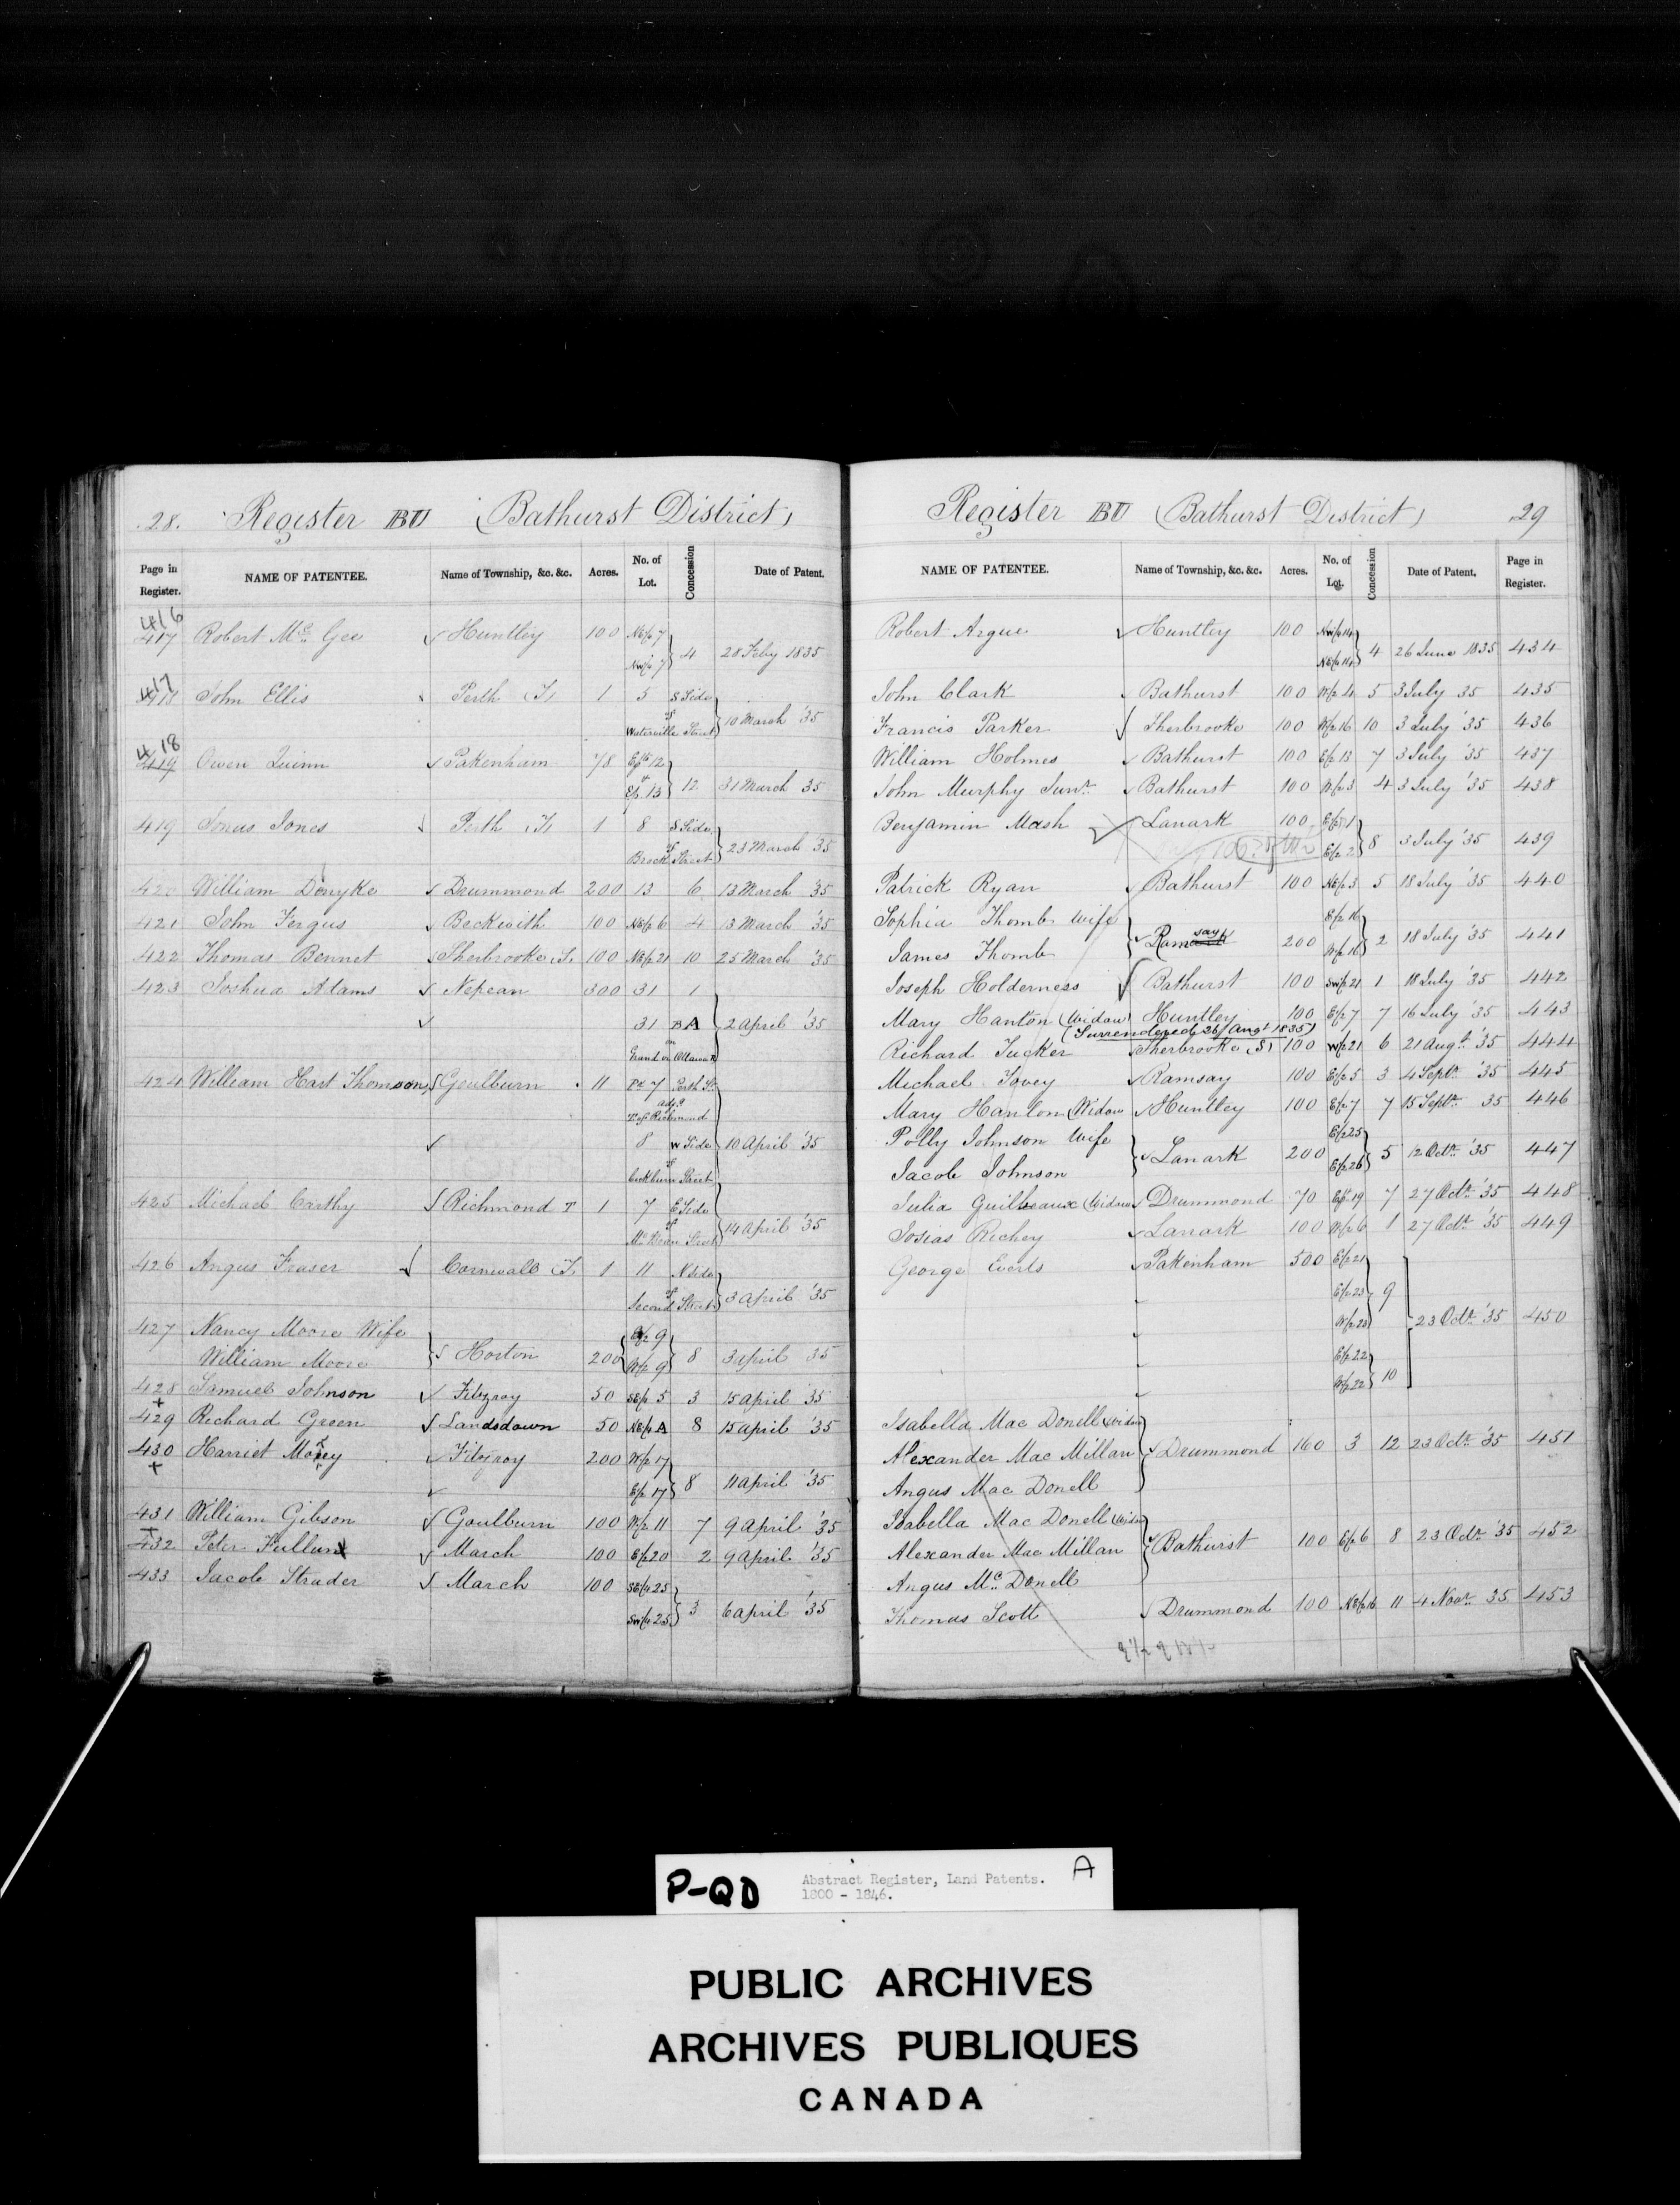 28. Register BU (Bathurst District)
Page in Register. NAME OF PATENTEE. Name of Township, &c. &c. Acres. No. of Lot. Concession Date of Patent.
416
417 Robert McGee Huntley 100 NE/2 7
NW/2 7 } 4 28 Feby 1835
417
418 John Ellis Perth (T) 1 5 S Side
of
Waterville Street } 10 March '35
418
419 Owen Quinn Pakenham 78 E pt 12
&
E/2 13 } 12 31 March 35
419 Jonas Jones Perth (T) 1 8 S Side
of
Brock Street } 23 March 35
420 William Denyke Drummond 200 13 6 13 March '35
421 John Fergus Beckwith 100 NE/2 6 4 13 March '35
422 Thomas Bennet Sherbrooke S. 100 NE/2 21 10 25 March '35
423 Joshua Adams Nepean 300 31 1
31 B A } 2 April '35
on
Grand or Ottawa R
424 William Hart Thomson Goulburn 11 Pt 7 Perth St.
adjg
T. of Richmond
8 W Side } 10 April '35
of
Cockburn Street
425 Michael Carthy Richmond T 1 7 E Side
of
McBean Street } 14 April '35
426 Angus Fraser Cornwall (T. 1 11 N Side
of
Second Street } 3 April '35
427 Nancy Moore Wife
William Moore } Horton 200 { E/2 9
W/2 9 } 8 3 April 35
428 Samuel Johnson Fitzroy 50 SE/4 5 3 15 April 35
+
429 Richard Green Landsdown 50 NE/4 A 8 15 April '35
430 Harriet Morey Fitzroy 200 W/2 17
+
E/2 17 } 8 11 April '35
431 William Gibson Goulburn 100 W/2 11 7 9 April '35
+
432 Peter Fullum March 100 E/2 20 2 9 April '35
433 Jacob Strader March 100 SE/4 25
SW/4 25 } 3 6 April '35
Register BU (Bathurst District) 29
NAME OF PATENTEE. Name of Township, &c. &c. Acres. No. of Lot. Concession Date of Patent. Page in Register.
Robert Argue Huntley 100 NW/2 14
NE/2 14 } 4 26 June 1835 434
John Clark Bathurst 100 W/2 4 5 3 July 35 435
Francis Parker Sherbrooke 100 W/2 16 10 3 July '35 436
William Holmes Bathurst 100 E/2 13 7 3 July '35 437
John Murphy Junr. Bathurst 100 W/2 3 4 3 July '35 438
Benjamin Mash Lanark 100 E/2 1
E/2 2 } 8 3 July '35 439
Patrick Ryan Bathurst 100 NE/2 3 5 18 July '35 440
Sophia Thomb Wife
James Thomb } Ramsay 200 E/2 16
W/2 16 } 2 18 July '35 441
Joseph Holderness Bathurst 100 SW/2 21 1 18 July '35 442
Mary Hanton (Widow) Huntley 100 E/2 7 7 16 July '35 443
(Surrendered 26 Augt 1835)
Richard Tucker Sherbrooke (S) 100 W/2 21 6 21 Augt '35 444
Michael Tovey Ramsay 100 E/2 5 3 4 Septr '35 445
Mary Hanlon (Widow Huntley 100 E/2 7 7 15 Septr 35 446
Polly Johnson Wife
Jacob Johnson } Lanark 200 E/2 25
E/2 26 } 5 12 Octr '35 447
Julia Guilbeaux (Widow Drummond 70 E pt 19 7 27 Octr '35 448
Josias Richey Lanark 100 W/2 6 1 27 Octr '35 449
George Everts Pakenham 500 E/2 21
E/2 23 } 9
W/2 23 23 Octr '35 450
E/2 22
W/2 22 } 10
Isabella Mac Donell (Widow
Alexander Mac Millan } Drummond 160 3 12 23 Octr '35 451
Angus Mac Donell
Isabella Mac Donell (Widow
Alexander Mac Millan } Bathurst 100 E/2 6 8 23 Octr '35 452
Angus McDonell
Thomas Scott Drummond 100 NE/2 16 11 4 Novr 35 453
P-QD Abstract Register, Land Patents.
1800 - 1846. A
PUBLIC ARCHIVES
ARCHIVES PUBLIQUES
CANADA